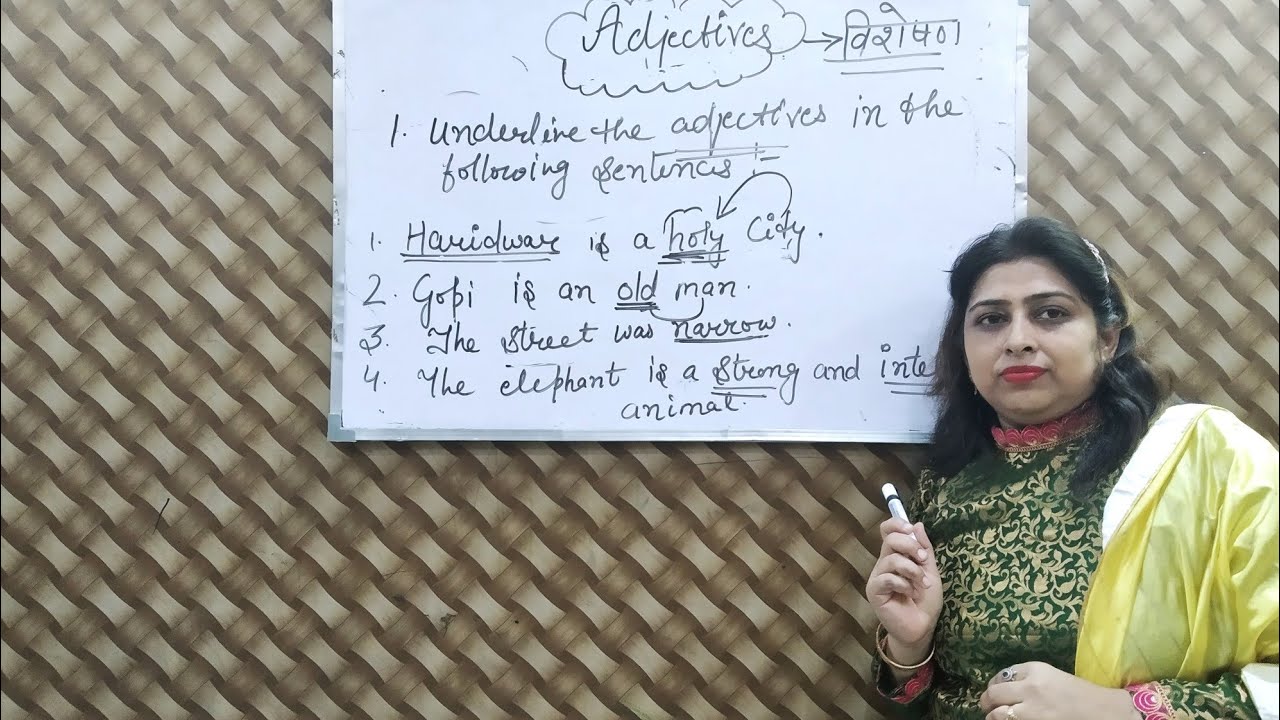 Adjectives → विशेषण
1. Underline the adjectives in the
following sentences :-
1. Haridwar is a holy City.
2. Gopi is an old man.
3. The street was narrow.
4. The elephant is a strong and
animal.